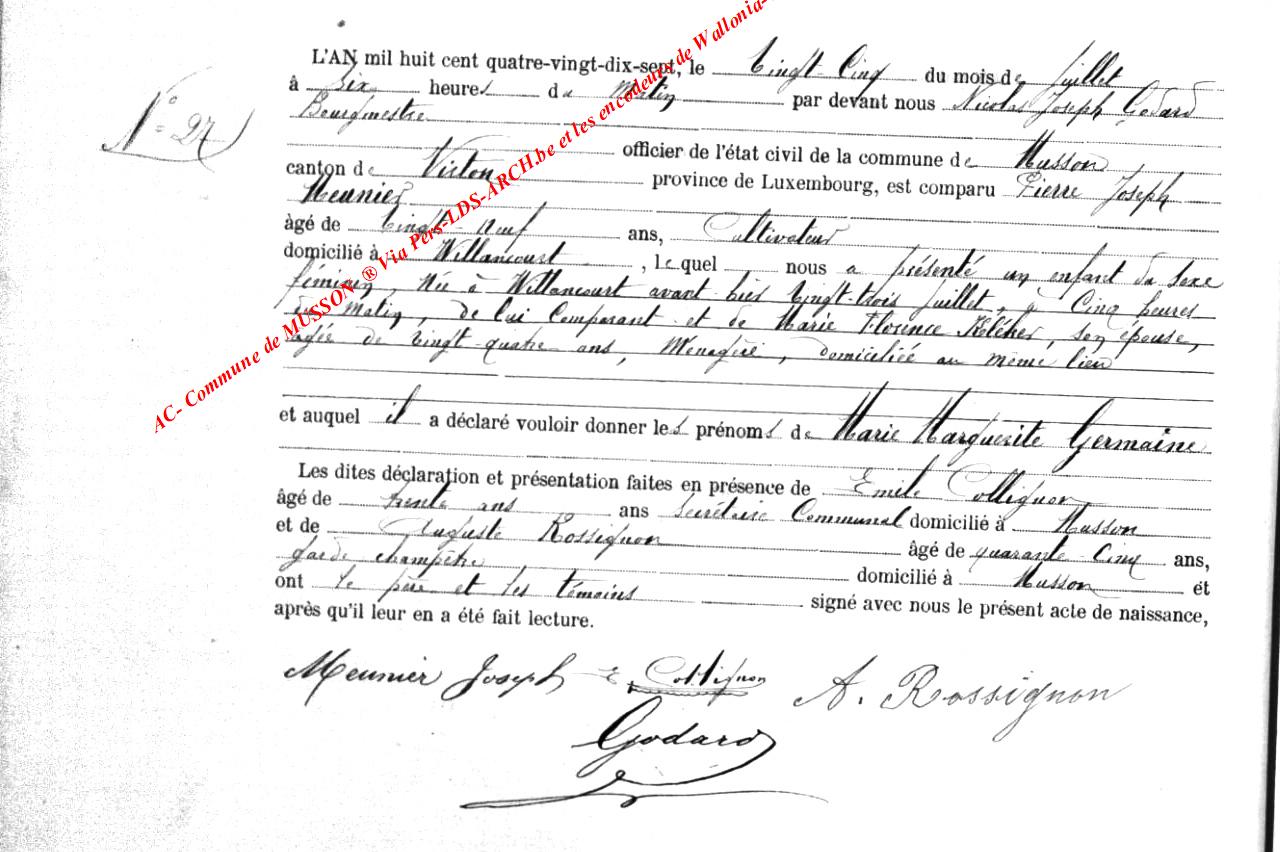 N° 27
L'AN mil huit cent quatre-vingt-dix-sept, le Vingt-Cinq du mois de juillet
à Six heures du Matin par devant nous Nicolas Joseph Godard
Bourgmestre
officier de l'état civil de la commune de Musson
canton de Virton province de Luxembourg, est comparu Pierre Joseph
Meunier
âgé de Vingt-neuf ans, Cultivateur
domicilié à Willancourt, lequel nous a présenté un enfant du sexe
féminin, née à Willancourt avant hier vingt-trois juillet, à Cinq heures
du Matin, de lui Comparant et de Marie Florence Kléker, son épouse,
âgée de vingt-quatre ans, Ménagère, domiciliée au même lieu
et auquel il a déclaré vouloir donner les prénoms de Marie Marguerite Germaine
Les dites déclaration et présentation faites en présence de Emile Collignon
âgé de trente ans ans Secrétaire Communal domicilié à Musson
et de Auguste Rossignon âgé de quarante-Cinq ans,
garde champêtre domicilié à Musson et
ont le père et les témoins signé avec nous le présent acte de naissance,
après qu'il leur en a été fait lecture.
Meunier Joseph E Collignon A. Rossignon
Godard
AC- Commune de MUSSON ® Via Pers-LDS-ARCH.be et les encodeurs de Wallonia-